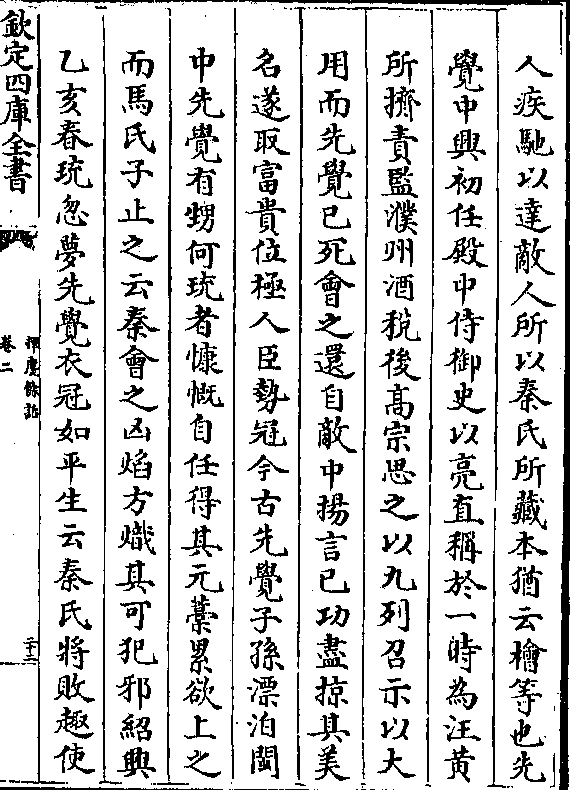 人疾馳以達敵人所以秦氏所藏本猶云檜等也先
覺中興初任殿中侍御史以亮直稱於一時為汪黃
所擠責監濮州酒税後髙宗思之以九列召示以大
用而先覺已死㑹之還自敵中揚言已功盡掠其美
名遂取富貴位極人臣勢冠今古先覺子孫漂泊閩
中先覺有甥何珫者慷慨自任得其元藁累欲上之
而馬氏子止之云秦㑹之凶焰方熾其可犯邪紹興
乙亥春珫忽夢先覺衣冠如平生云秦氏将敗趣使
欽定四庫全書
揮麈餘話
卷二
二十二